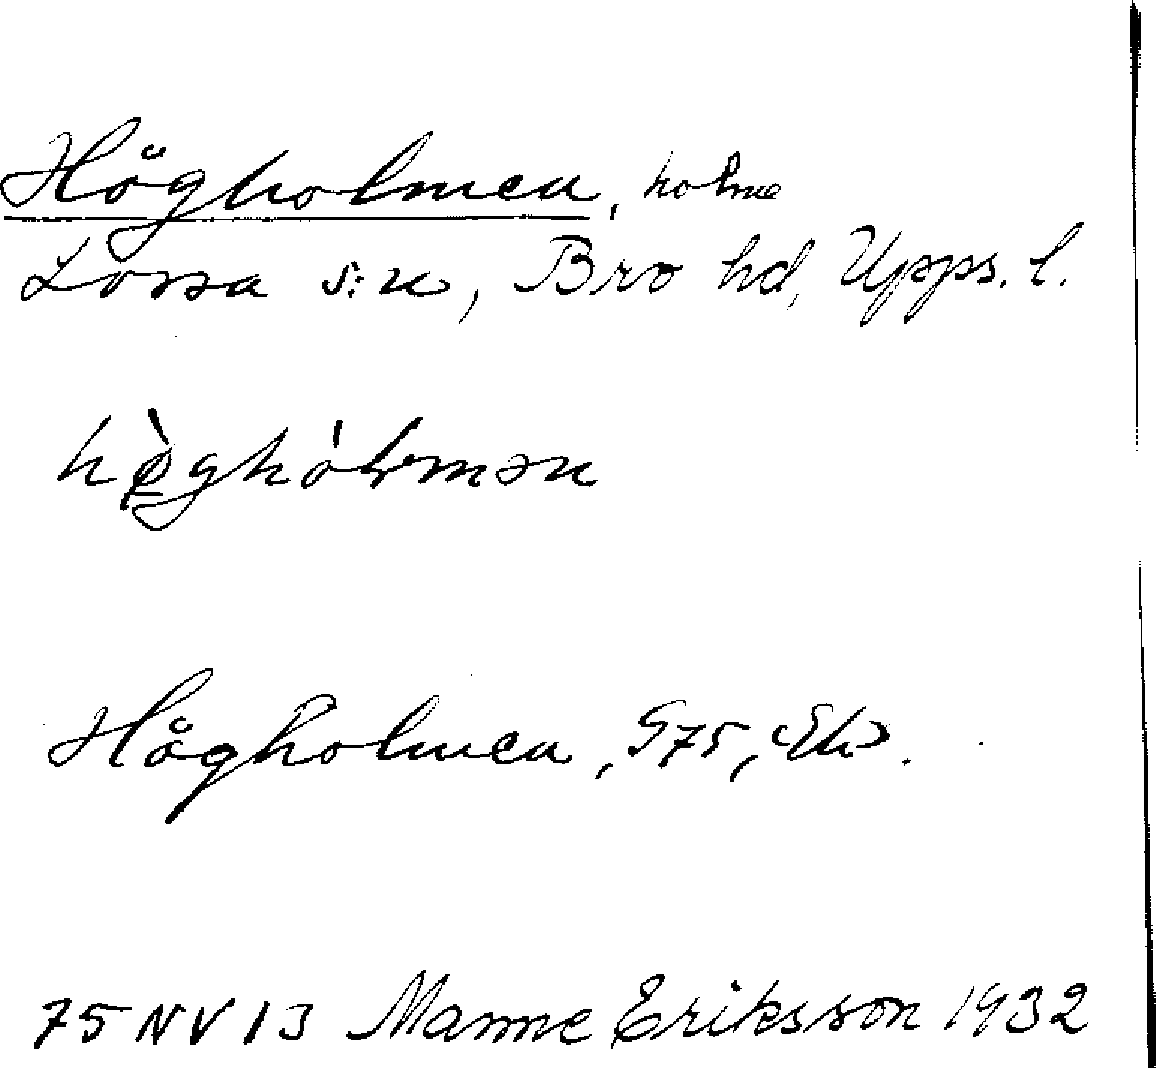 Högholmen, holme
Lossa s:n, Bro hd, Upps. l.
hø̀ghólmən
Högholmen, G75, Ek.
75 NV 13 Manne Eriksson 1932